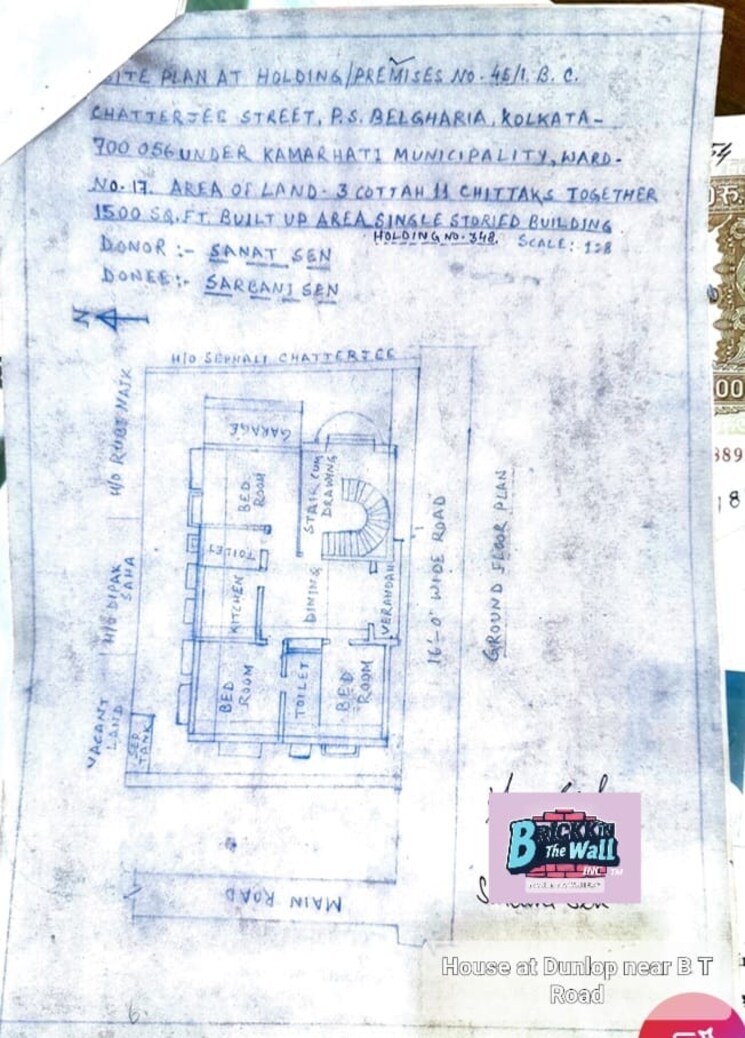 SITE PLAN AT HOLDING/PREMISES NO-45/1. B. C.
CHATTERJEE STREET, P.S. BELGHARIA, KOLKATA-
700 056 UNDER KAMARHATI MUNICIPALITY, WARD-
NO-17. AREA OF LAND- 3 COTTAH 11 CHITTAKS TOGETHER
1500 SQ.FT. BUILT UP AREA SINGLE STORIED BUILDING
HOLDING NO-348. SCALE: 1:8
DONOR :- SANAT SEN
DONEE:- SARBANI SEN
N
H/O SEPHALI CHATTERJEE
H/O RUBI NAIK
GARAGE
BED ROOM
STAIR CUM DRAWING
TOILET
H/O DIPAK SAHA
KITCHEN
DINING
VERANDAH
16'-0" WIDE ROAD
GROUND FLOOR PLAN
BED ROOM
TOILET
BED ROOM
VACANT LAND
SEP. TANK
MAIN ROAD
BRICKKIN
The Wall
INC. TM
House at Dunlop near B T
Road
54
00
389
18